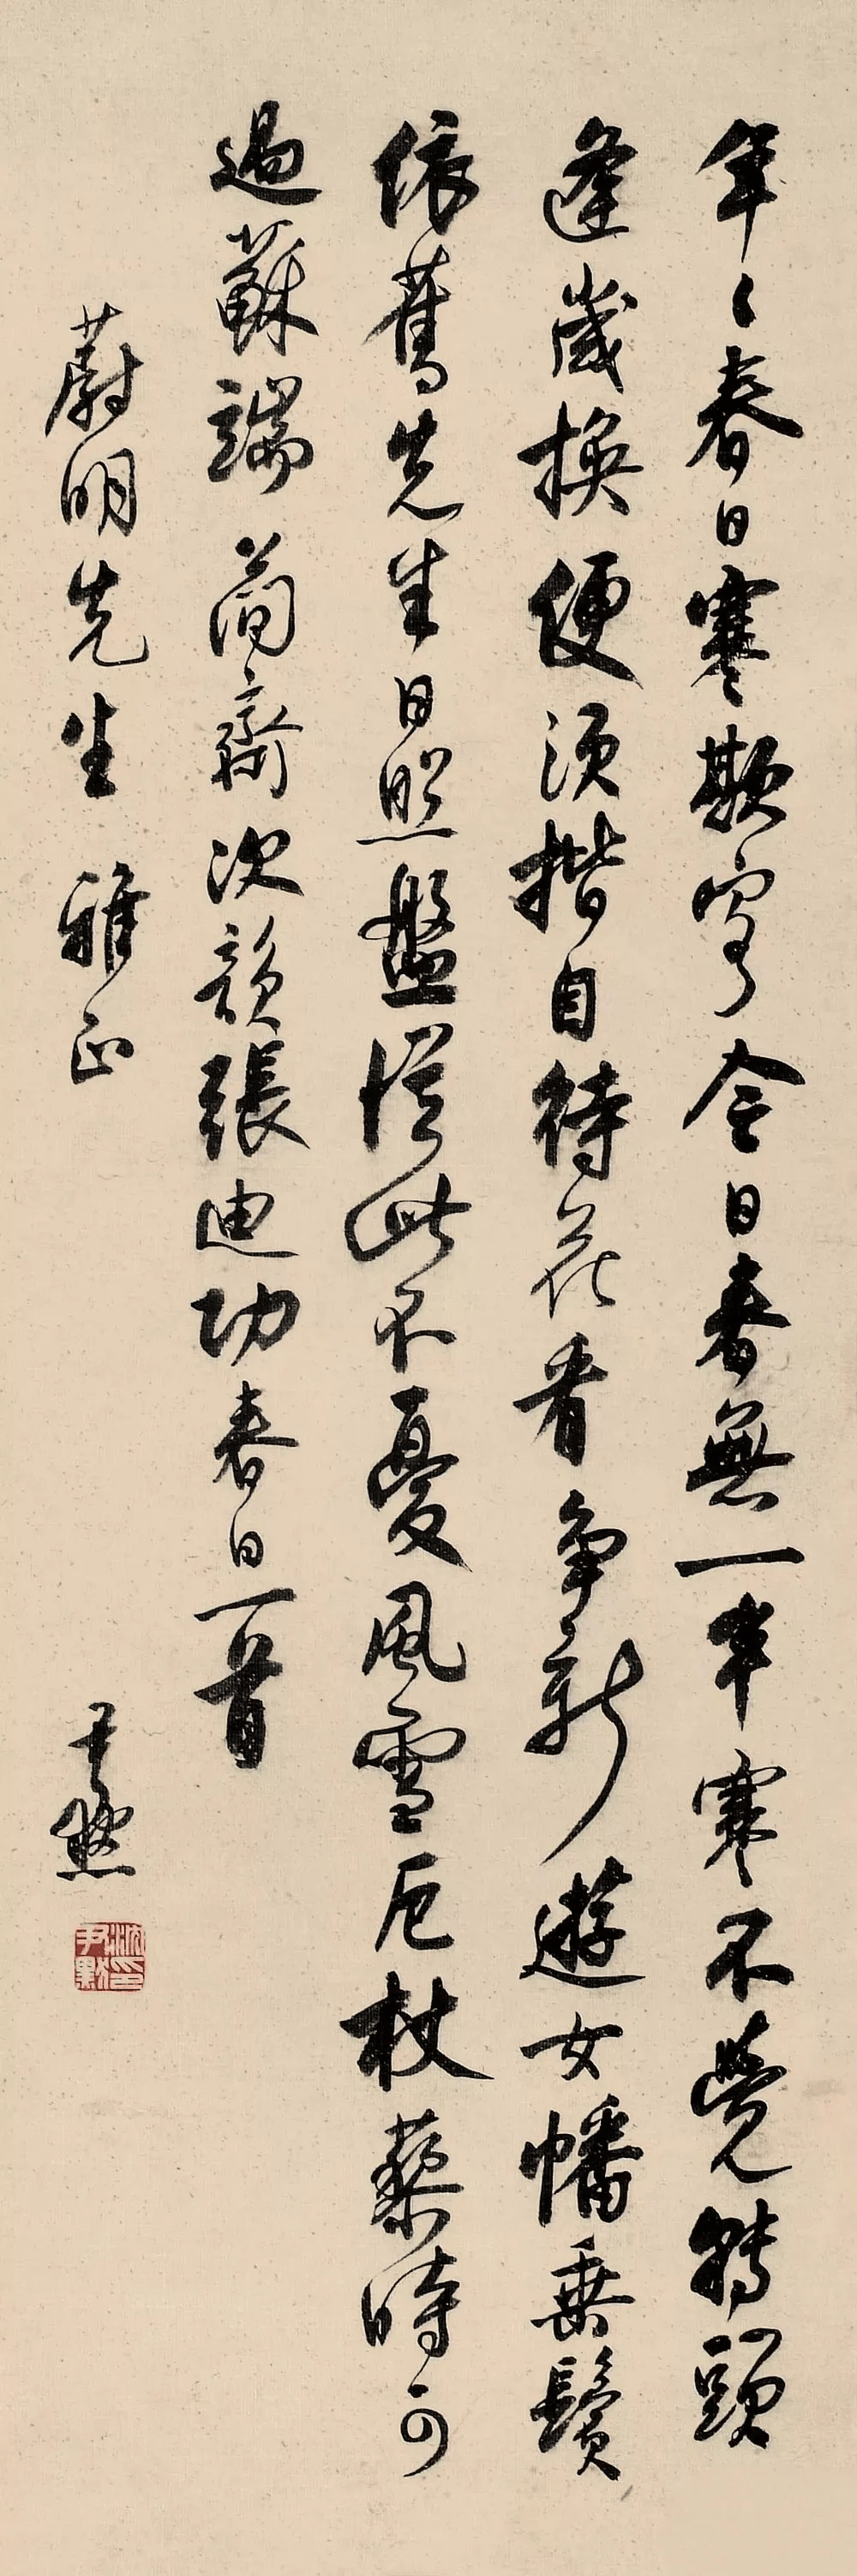 年〻春日寒欺客今日春無一半寒不覺轉頭
逢歲換便須揩目待花看爭新遊女幡垂鬢
依舊先生日照盤從此不憂風雪厄杖藜時可
過蘇端 簡齋次韻張迪功春日一首
蔚明先生 雅正
尹默
沈尹默印